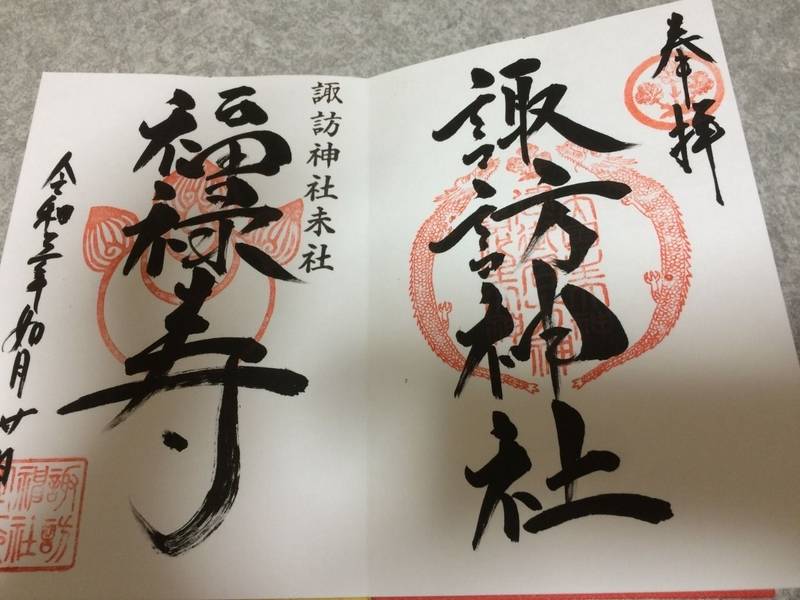 奉拝
諏訪神社
諏訪神社末社
福禄寿
令和三年如月廿
諏訪